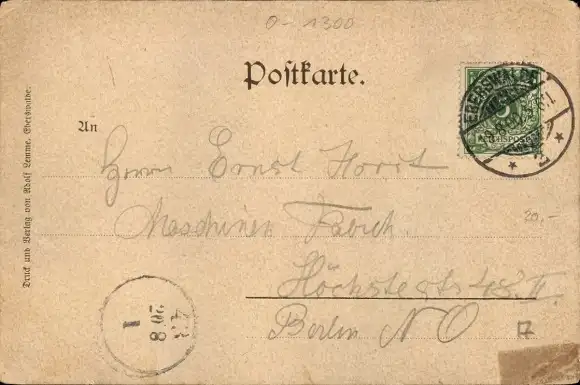 0-1300
Postkarte.
EBERSWALDE
* 2 *
5
REICHSPOST
An
Herrn Ernst Horst
Maschinen Fabrik.
20,-
Höchstestr 48. II.
Berlin NO
Druck und Verlag von Adolf Lemme, Eberswalde.